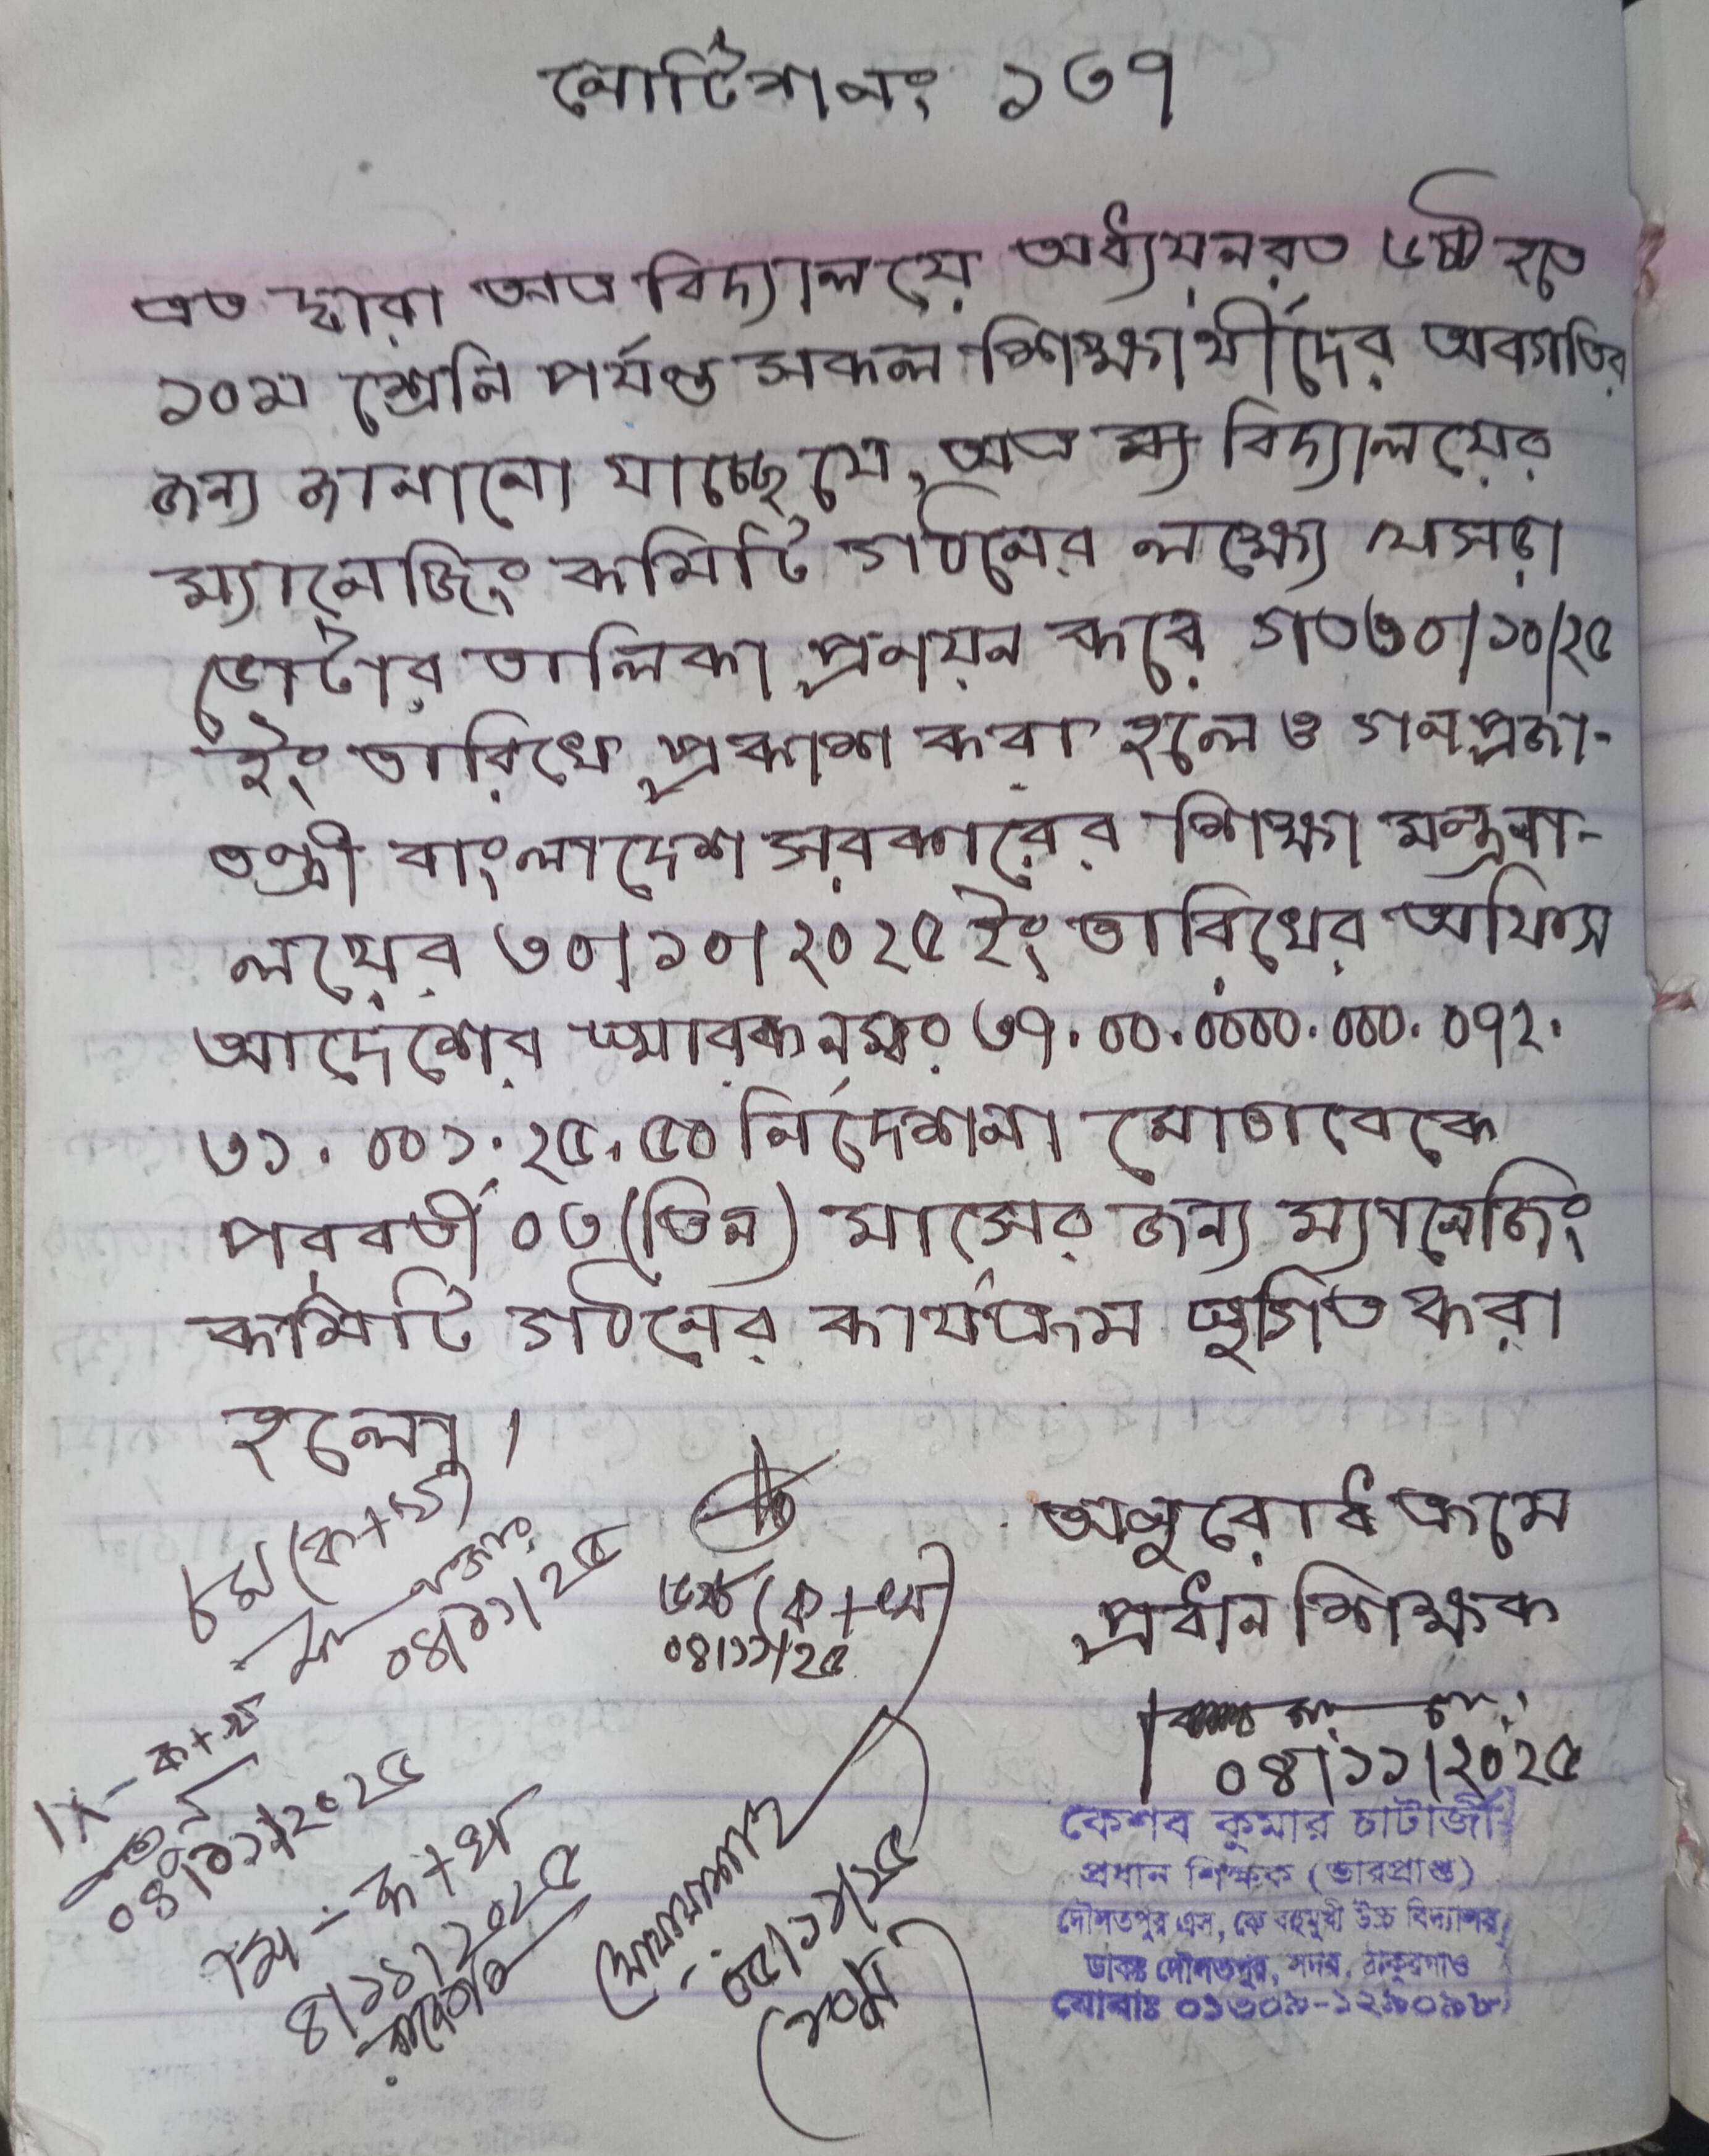 নোটিশ নং ১৩৭
এত দ্বারা অত্র বিদ্যালয়ে অধ্যয়নরত ৬ষ্ঠ হতে
১০ম শ্রেনি পর্যন্ত সকল শিক্ষার্থীদের অবগতির
জন্য জানানো যাচ্ছে যে, অত্র বিদ্যালয়ের
ম্যানেজিং কমিটি গঠনের লক্ষ্যে খসড়া
ভোটার তালিকা প্রনয়ন করে গত ৩০/১০/২৫
ইং তারিখে প্রকাশ করা হলে ও গনপ্রজা-
তন্ত্রী বাংলাদেশ সরকারের শিক্ষা মন্ত্রনা-
লয়ের ৩০/১০/২০২৫ ইং তারিখের অফিস
আদেশের স্মারক নম্বর ৩৭.০০.০০০০.০০০.০৭২.
৩১.০০১.২৫.৫০ নির্দেশনা মোতাবেকে
পরবর্তী ০৩ (তিন) মাসের জন্য ম্যানেজিং
কমিটি গঠনের কার্যক্রম স্থগিত করা
হলো।
অনুরোধক্রমে
প্রধান শিক্ষক
০৪/১১/২০২৫
কেশব কুমার চাটার্জী
প্রধান শিক্ষক (ভারপ্রাপ্ত)
দৌলতপুর এস, কে বহুমুখী উচ্চ বিদ্যালয়
ডাকঃ দৌলতপুর, সদর, ঠাকুরগাঁও
মোবাঃ
৮ম (ক+খ)
০৪/১১/২৫
৬ষ্ঠ (ক+খ)
০৪/১১/২৫
IX - ক+খ
০৪/১১/২০২৫
৭ম - ক+খ
৪/১১/২০২৫
০৫/১১/২৫
(১০ম)